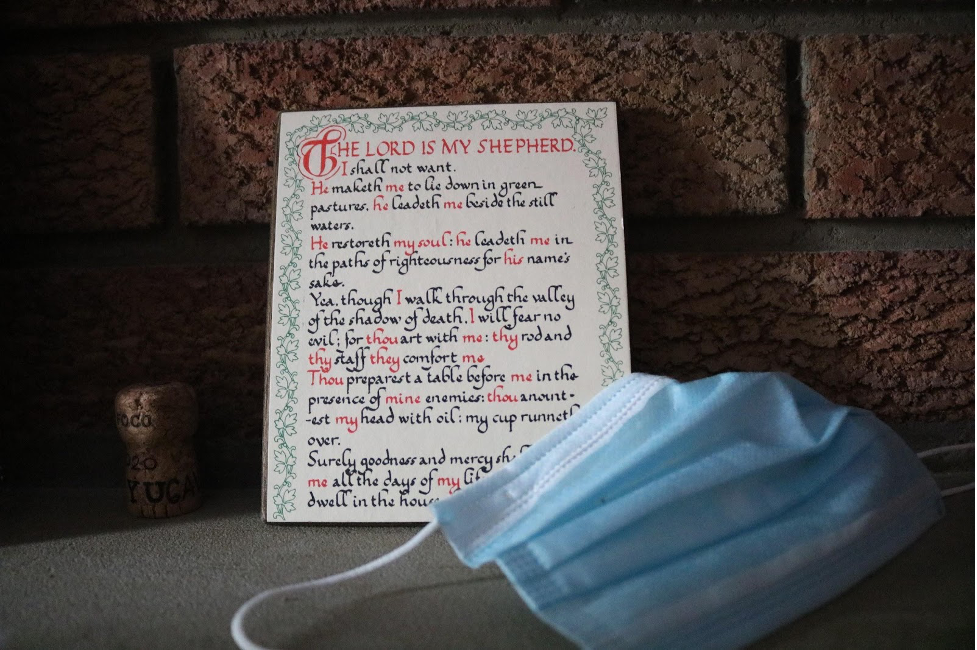 THE LORD IS MY SHEPHERD.
I shall not want.
He maketh me to lie down in green
pastures. he leadeth me beside the still
waters.
He restoreth my soul: he leadeth me in
the paths of righteousness for his name's
sake.
Yea, though I walk through the valley
of the shadow of death, I will fear no
evil; for thou art with me: thy rod and
thy staff they comfort me
Thou preparest a table before me in the
presence of mine enemies: thou anoint-
-est my head with oil: my cup runneth
over.
Surely goodness and mercy
me all the days of my
dwell in the